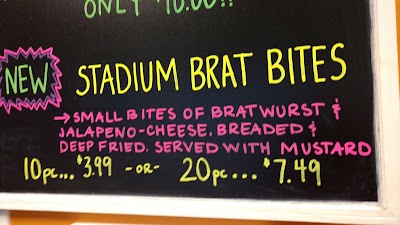 ONLY 10.00!!
NEW STADIUM BRAT BITES
→SMALL BITES OF BRATWURST &
JALAPENO-CHEESE, BREADED &
DEEP FRIED. SERVED WITH MUSTARD
10pc...$3.99 -OR- 20pc...$7.49